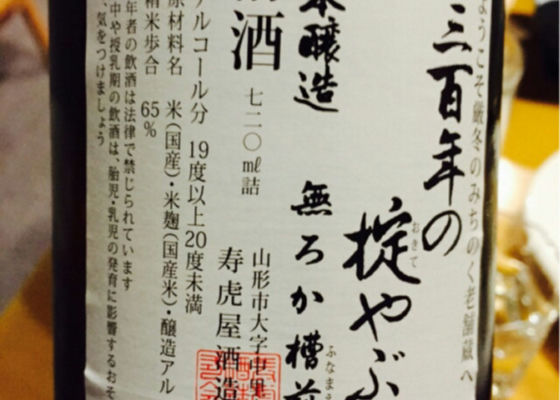 ようこそ厳冬のみちのく老舗蔵へ
三百年の
掟やぶ
おきて
本醸造 無ろか槽前
ふなまえ
酒 七二〇㎖詰
山形市大字中里
寿虎屋酒造
アルコール分 19度以上20度未満
原材料名 米(国産)・米麹(国産米)・醸造アル
精米歩合 65%
年者の飲酒は法律で禁じられています
中や授乳期の飲酒は、胎児・乳児の発育に影響するおそ
、気をつけましょう